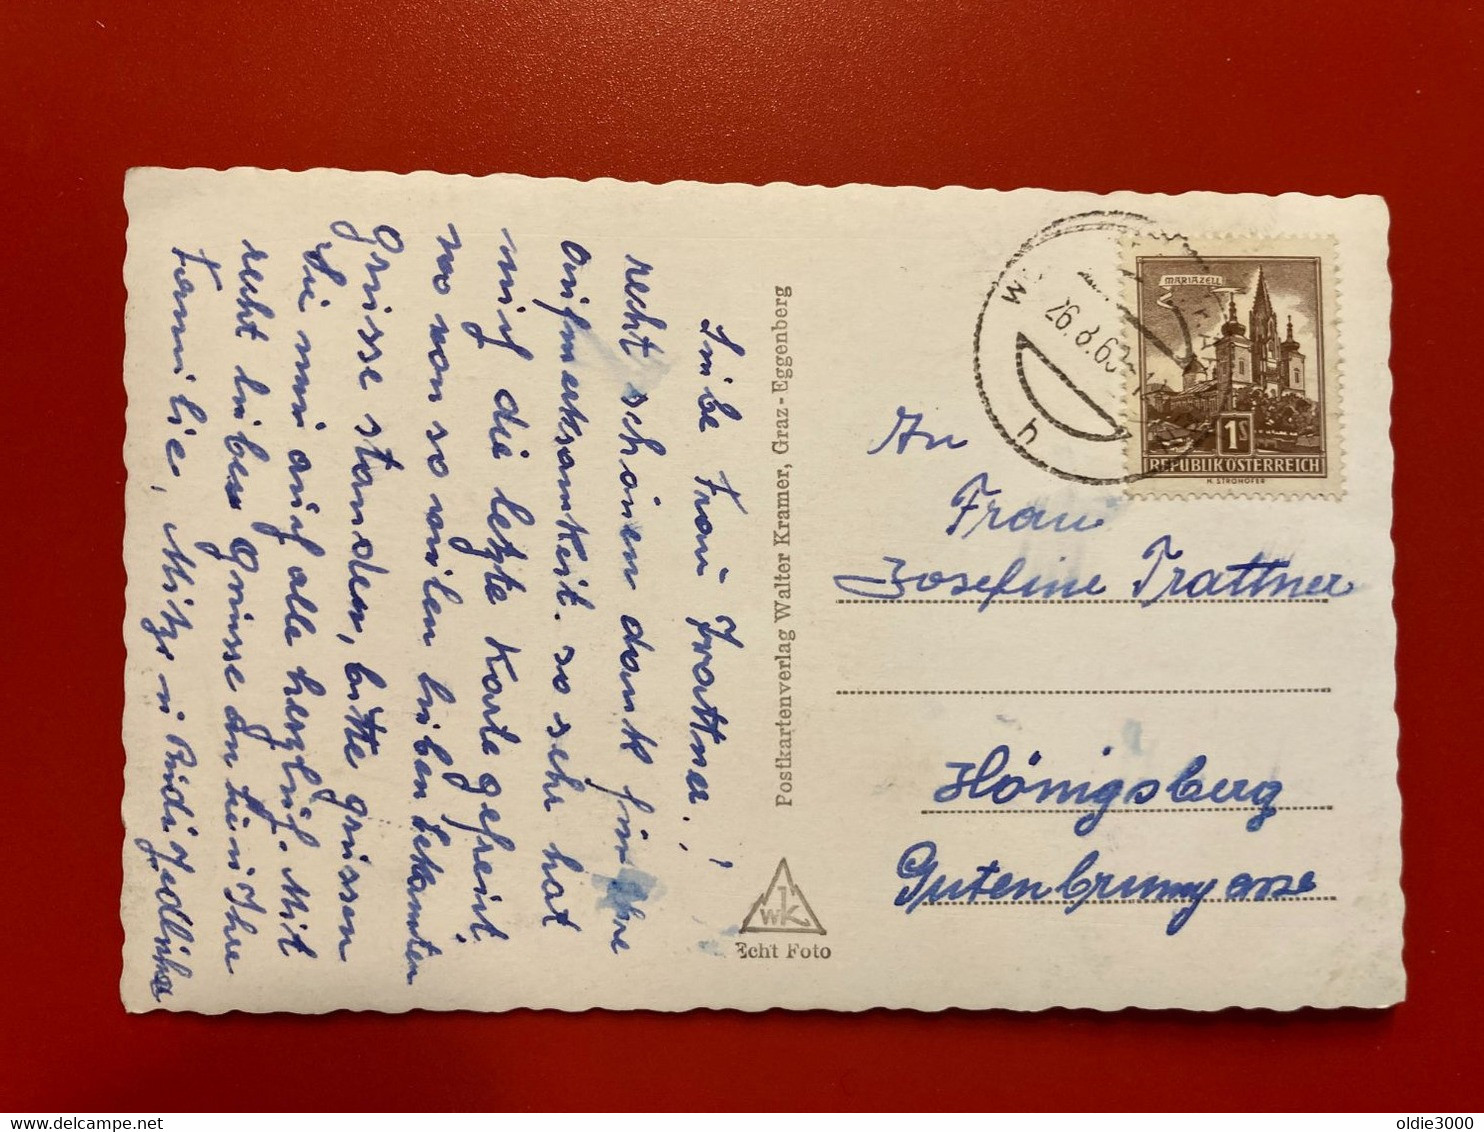 Liebe Frau Trattner!
recht schönen dank für Ihre
Aufmerksamkeit. so sehr hat
mich die letzte Karte gefreut.
wo von so vilen liben Bekannten
Grüsse standen, bitte grüssen
Sie mir auch alle herzlich. Mit
recht lieben Grüsse an Sie u Ihre
Familie, Mitzi u Rudi Jedlicka
Postkartenverlag Walter Kramer, Graz-Eggenberg
WK
Echt Foto
26.8.63
h
MARIAZELL
1S
REPUBLIK ÖSTERREICH
H. STROHOFER
An
Frau
Josefine Trattner
Hönigsberg
Gutenbrunngasse
delcampe.net
oldie3000